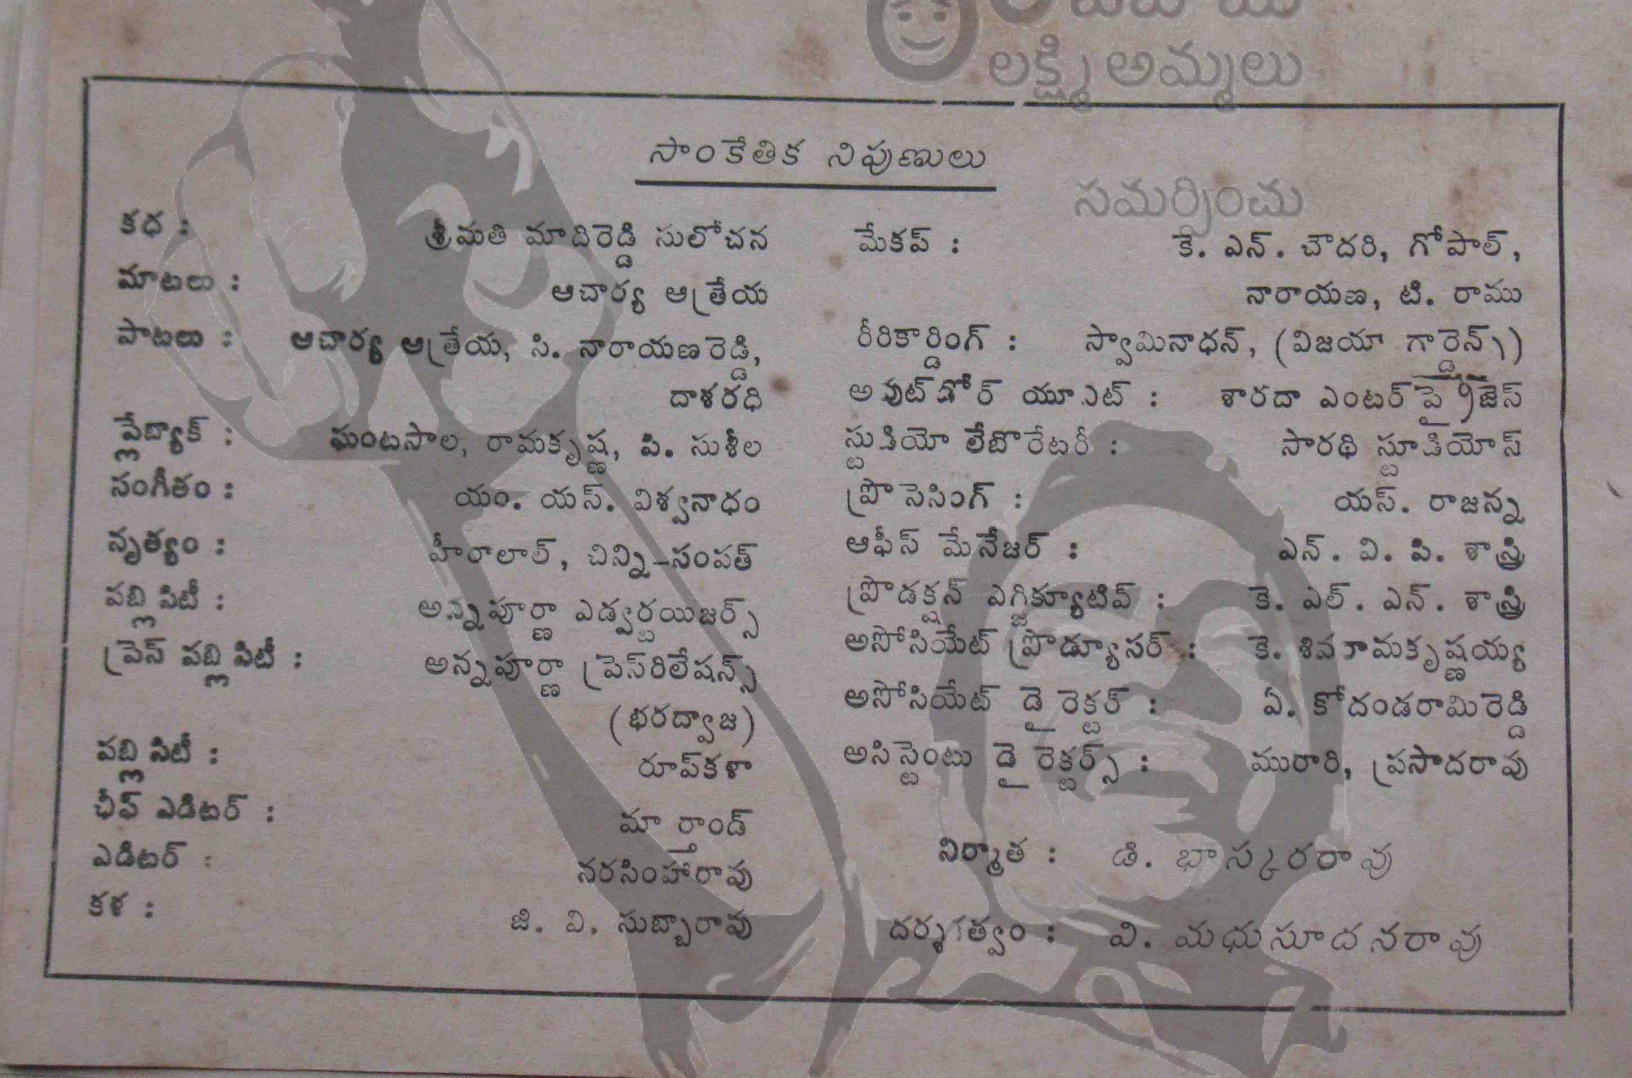 లక్ష్మి అమ్మలు
సాంకేతిక నిపుణులు
సమర్పించు
కధ : శ్రీమతి మాదిరెడ్డి సులోచన
మాటలు : ఆచార్య ఆత్రేయ
పాటలు : ఆచార్య ఆత్రేయ, సి. నారాయణరెడ్డి,
దాశరధి
ప్లేబ్యాక్ : ఘంటసాల, రామకృష్ణ, పి. సుశీల
సంగీతం : యం. యస్. విశ్వనాధం
నృత్యం : హీరాలాల్, చిన్ని-సంపత్
పబ్లిసిటీ : అన్నపూర్ణా ఎడ్వర్టయిజర్స్
ప్రెస్ పబ్లిసిటీ : అన్నపూర్ణా ప్రెస్‌రిలేషన్స్
(భరద్వాజ)
పబ్లిసిటీ : రూప్‌కళా
ఛీఫ్ ఎడిటర్ : మార్తాండ్
ఎడిటర్ : నరసింహారావు
కళ : జి. వి. సుబ్బారావు
మేకప్ : కె. ఎన్. చౌదరి, గోపాల్,
నారాయణ, టి. రాము
రీరికార్డింగ్ : స్వామినాధన్, (విజయా గార్డెన్స్)
అవుట్‌డోర్ యూనిట్ : శారదా ఎంటర్‌ప్రైజెస్
స్టుడియో లేబొరేటరీ : సారథి స్టూడియోస్
ప్రొసెసింగ్ : యస్. రాజన్న
ఆఫీస్ మేనేజర్ : ఎన్. వి. పి. శాస్త్రి
ప్రొడక్షన్ ఎగ్జిక్యూటివ్ : కె. ఎల్. ఎన్. శాస్త్రి
అసోసియేట్ ప్రొడ్యూసర్ : కె. శివరామకృష్ణయ్య
అసోసియేట్ డైరెక్టర్ : ఏ. కోదండరామిరెడ్డి
అసిస్టెంటు డైరెక్టర్స్ : మురారి, ప్రసాదరావు
నిర్మాత : డి. భాస్కరరావు
దర్శకత్వం : వి. మధుసూదనరావు